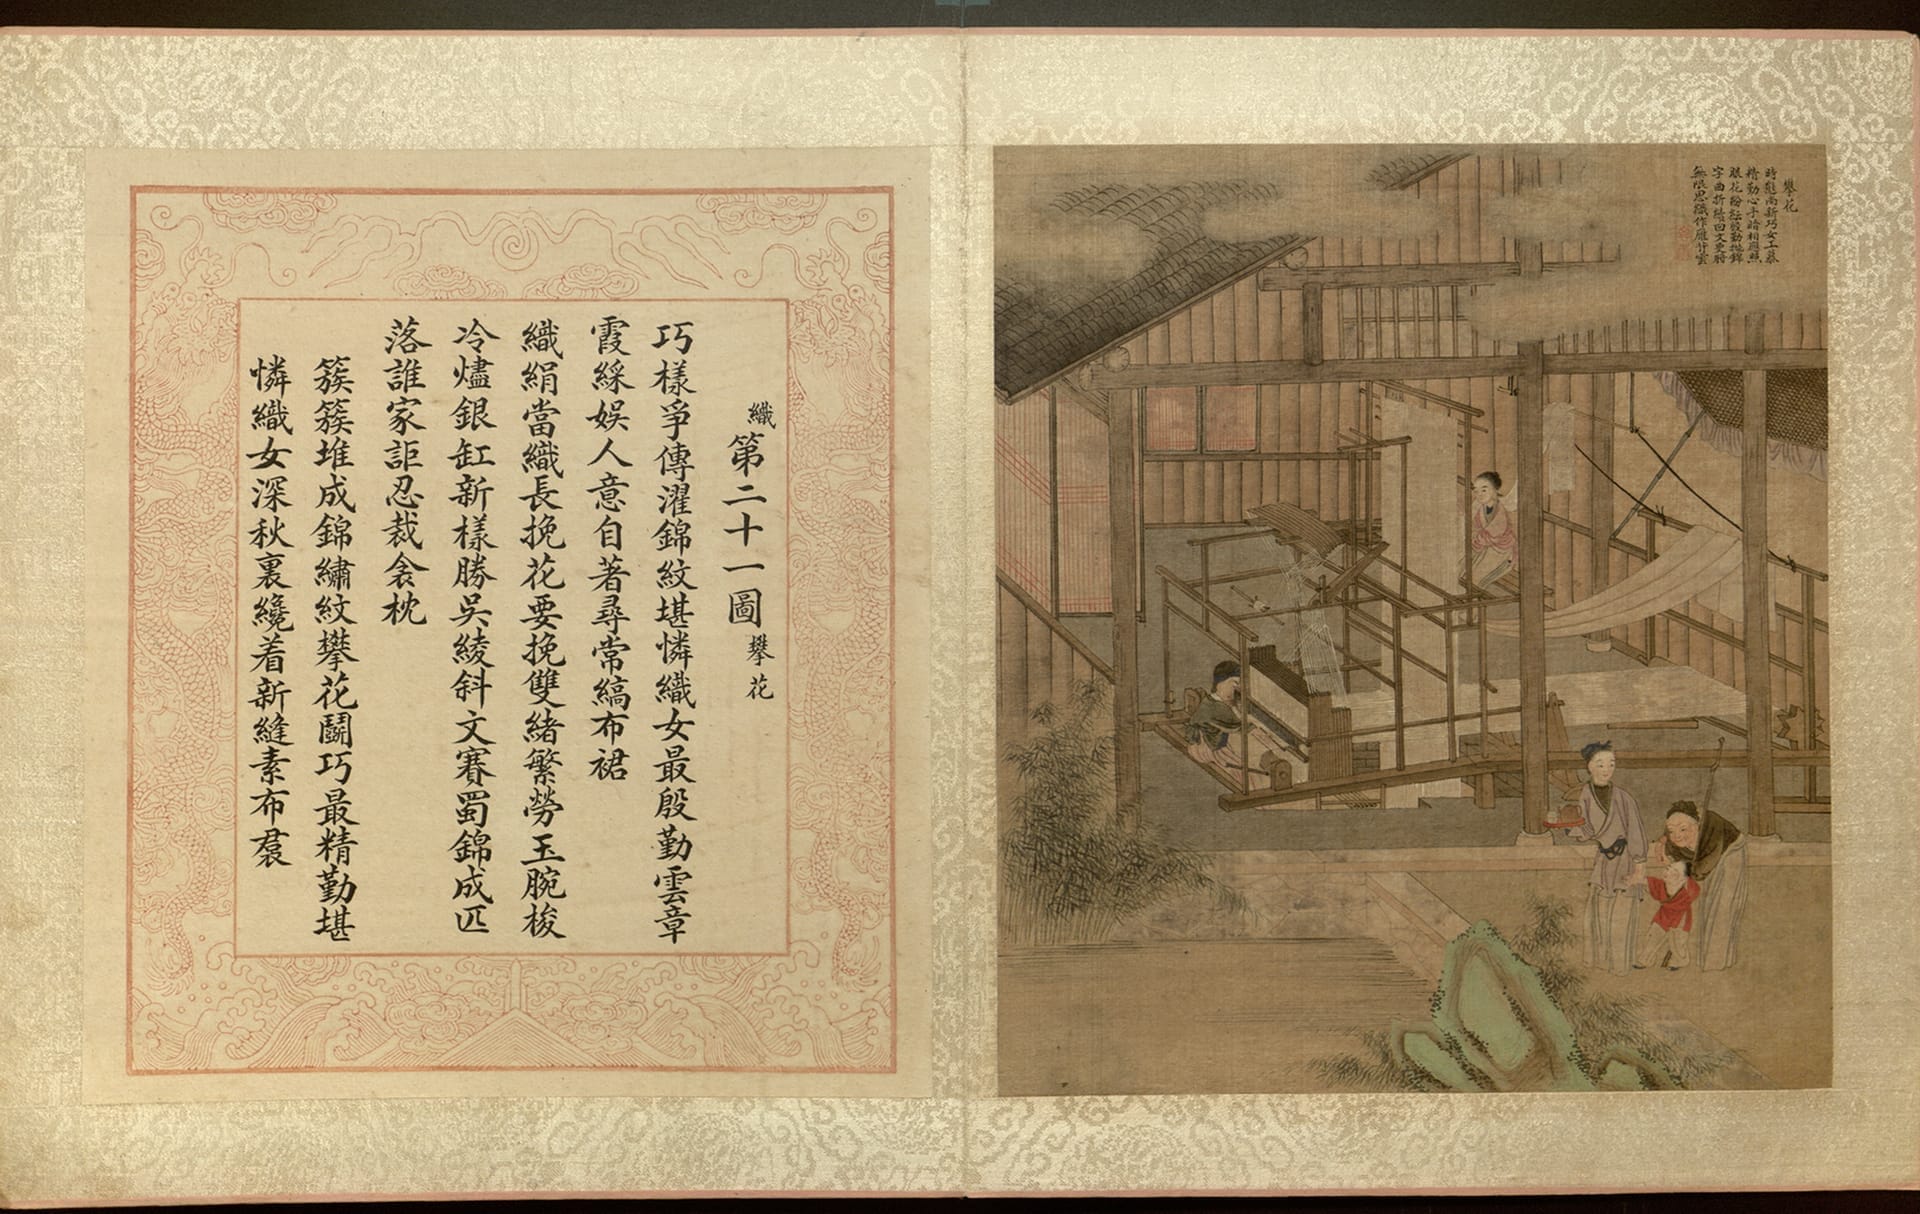 織第二十一圖攀花
巧樣爭傳濯錦紋堪憐織女最殷勤雲章
霞綵娛人意自著尋常縞布裙
織絹當織長挽花要挽雙緒繁勞玉腕梭
冷燼銀缸新樣勝吳綾斜文賽蜀錦成匹
落誰家詎忍裁衾枕
簇簇堆成錦繡紋攀花鬭巧最精勤堪
憐織女深秋裏纔着新縫素布裠
攀花
時態尚新巧女工慕
精勤心手暗相應照
眼花紛紜殷勤挑錦
字曲折續回文更將
無限思織作雁背雲